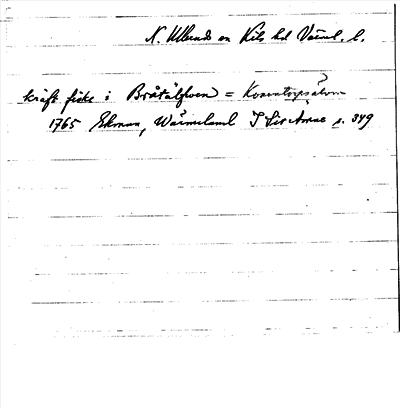 N. Ullerud sn Kils hd Värml. l.
kräft fiske i Bråtälfwen = Kvarntorpsälven
1765 Ekman, Wärmeland I sin Ämne s. 349